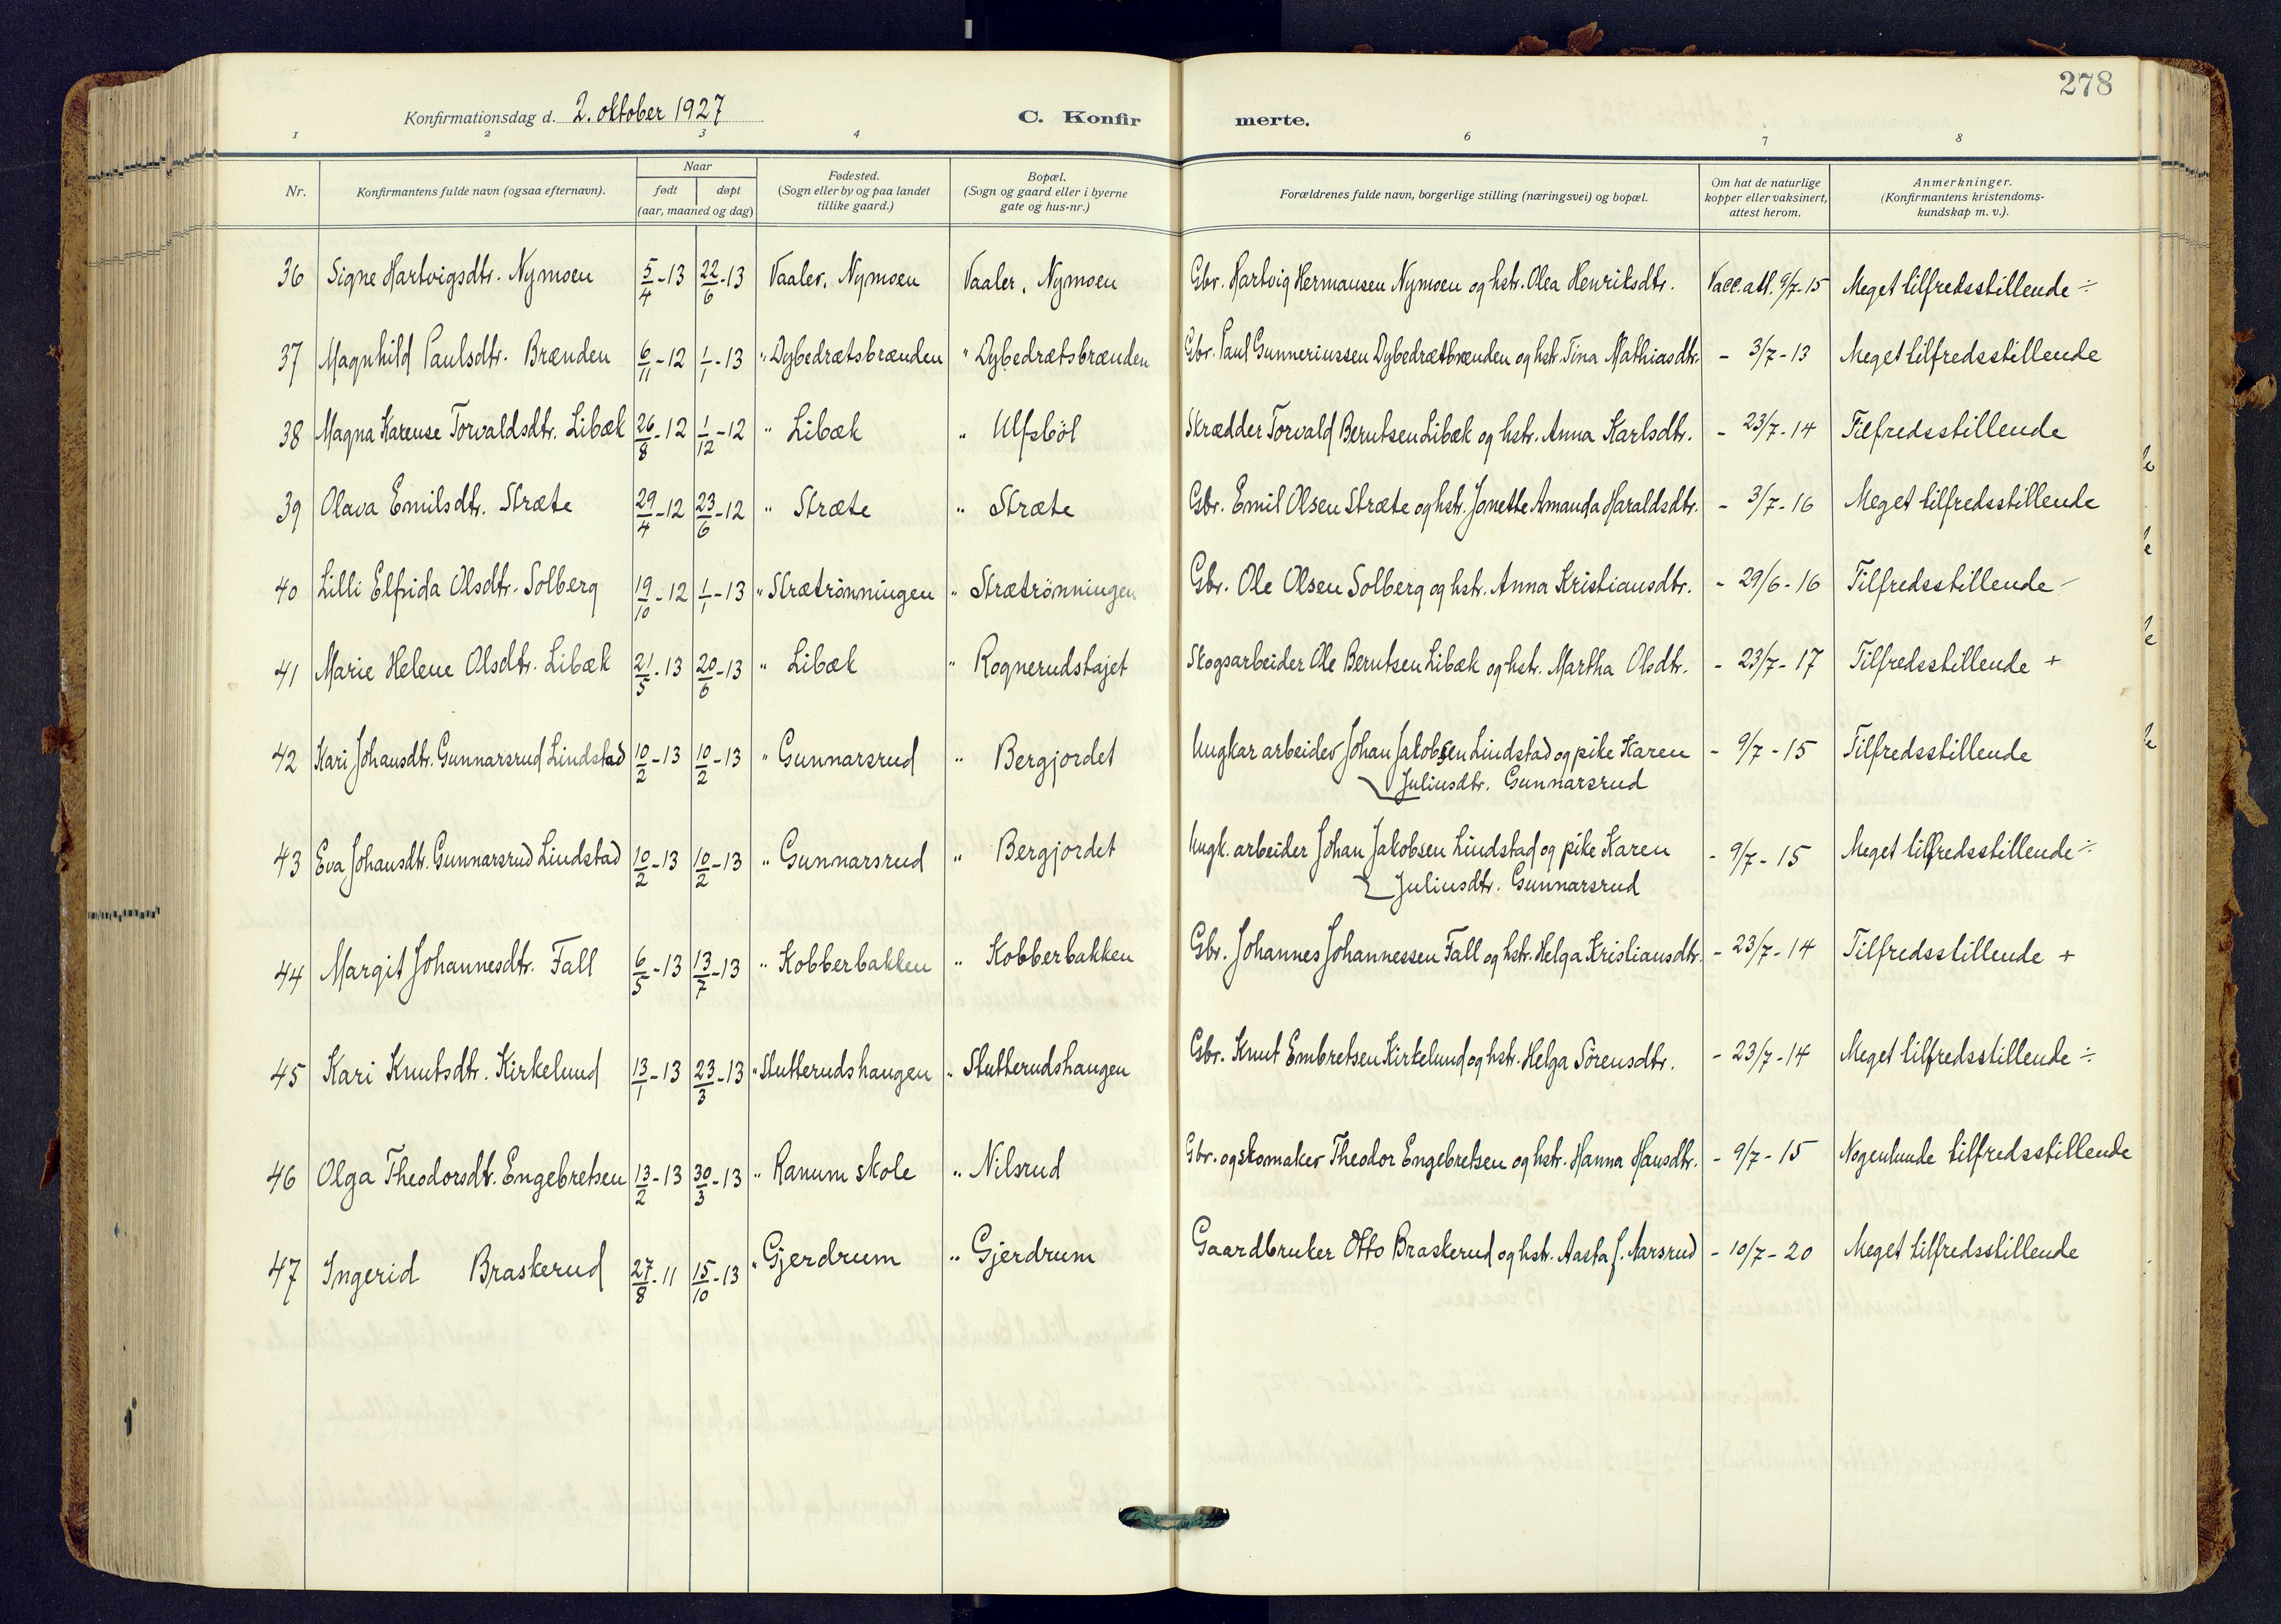 278
Konfirmationsdag d. 2. oktober 1927 C. Konfirmerte.
1 2 3 4 6 7 8
Nr. Konfirmantens fulde navn (ogsaa efternavn). Naar født døpt (aar, maaned og dag) Fødested. (Sogn eller by og paa landet tillike gaard.) Bopæl. (Sogn og gaard eller i byerne gate og hus-nr.) Forældrenes fulde navn, borgerlige stilling (næringsvei) og bopæl. Om hat de naturlige kopper eller vaksinert, attest herom. Anmerkninger. (Konfirmantens kristendoms-kundskap m. v.).
36 Signe Hartvigsdtr. Nymoen 5/4-13 22/6-13 Vaaler, Nymoen Vaaler, Nymoen Gbr. Hartvig Hermansen Nymoen og hstr. Olea Henriksdtr. Vacc. att. 9/7-15 Meget tilfredsstillende ÷
37 Magnhild Paulsdtr. Brænden 6/11-12 1/1-13 " Dybedrætsbrænden " Dybedrætsbrænden Gbr. Paul Gunneriussen Dybedrætbrænden og hstr. Tina Mathiasdtr. - 3/7-13 Meget tilfredsstillende
38 Magna Karense Torvaldsdtr. Libæk 26/8-12 1/12-12 " Libæk " Ulfsböl Skrædder Torvald Berntsen Libæk og hstr. Anna Karlsdtr. - 23/7-14 Tilfredsstillende
39 Olava Emilsdtr. Stræte 29/4-12 23/6-12 " Stræte " Stræte Gbr. Emil Olsen Stræte og hstr. Jonette Amanda Haraldsdtr. - 3/7-16 Meget tilfredsstillende
40 Lilli Elfrida Olsdtr. Solberg 19/10-12 1/1-13 " Strætrönningen " Strætrönningen Gbr. Ole Olsen Solberg og hstr. Anna Kristiansdtr. - 29/6-16 Tilfredsstillende -
41 Marie Helene Olsdtr. Libæk 21/5-13 20/6-13 " Libæk " Rognerudstajet Skogsarbeider Ole Berntsen Libæk og hstr. Martha Olsdtr. - 23/7-17 Tilfredsstillende +
42 Kari Johansdtr. Gunnarsrud Lindstad 10/2-13 10/2-13 " Gunnarsrud " Bergjordet Ungkar arbeider Johan Jakobsen Lindstad og pike Karen - 9/7-15 Tilfredsstillende
Juliusdtr. Gunnarsrud
43 Eva Johansdtr. Gunnarsrud Lindstad 10/2-13 10/2-13 " Gunnarsrud " Bergjordet Ungk. arbeider Johan Jakobsen Lindstad og pike Karen - 9/7-15 Meget tilfredsstillende ÷
Juliusdtr. Gunnarsrud
44 Margit Johannesdtr. Fall 6/5-13 13/7-13 " Kobberbakken " Kobberbakken Gbr. Johannes Johannessen Fall og hstr. Helga Kristiansdtr. - 23/7-14 Tilfredsstillende +
45 Kari Knutsdtr. Kirkelund 13/1-13 23/3-13 " Stutterudshaugen " Stutterudshaugen Gbr. Knut Embretsen Kirkelund og hstr. Helga Sörensdtr. - 23/7-14 Meget tilfredsstillende ÷
46 Olga Theodorsdtr. Engebretsen 13/2-13 30/3-13 " Ranum skole " Nilsrud Gbr. og skomaker Theodor Engebretsen og hstr. Hanna Hansdtr. - 9/7-15 Nogenlunde tilfredsstillende
47 Ingerid Braskerud 27/8-11 15/10-13 " Gjerdrum " Gjerdrum Gaardbruker Otto Braskerud og hstr. Aasta f. Aarsrud - 10/7-20 Meget tilfredsstillende